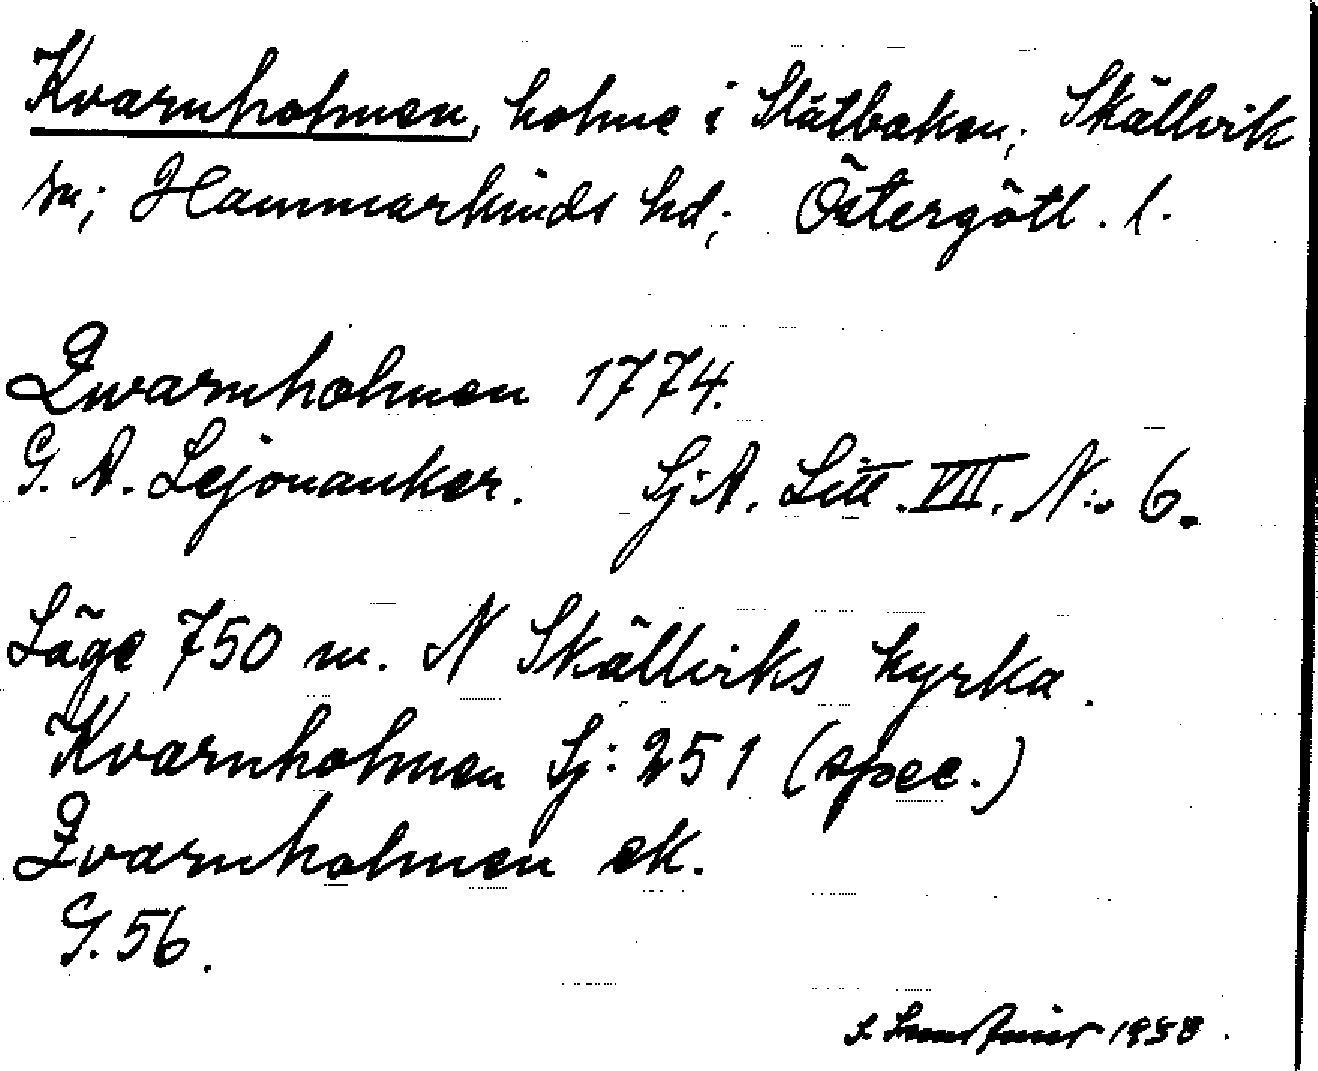 Kvarnholmen, holme i Slätbaken; Skällvik
sn; Hammarkinds hd; Östergötl. l.
Qwarnholmen 1774.
G. A. Lejonanker. Sj:A. Litt. VII. N:o 6.
Läge 750 m. N Skällviks kyrka.
Kvarnholmen Sj: 251 (spec.)
Qvarnholmen ek.
G. 56.
S. 1938.